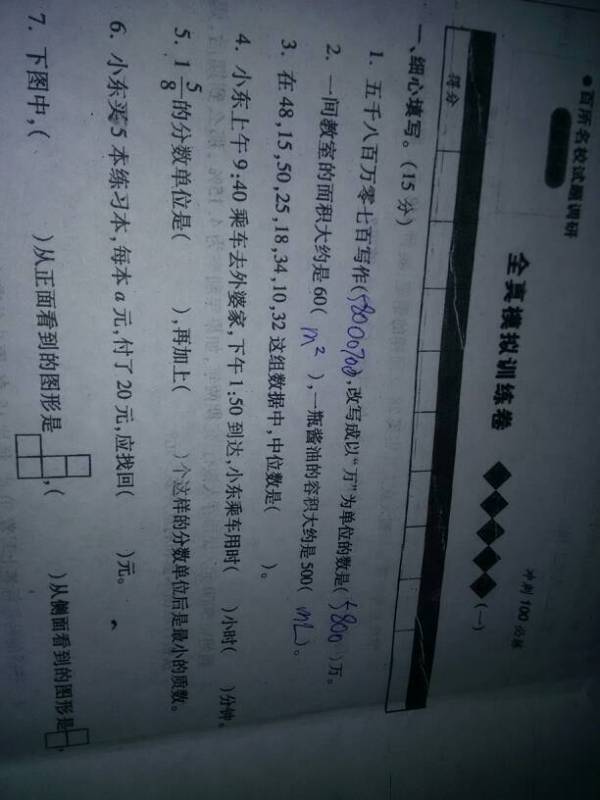 ●百所名校试题调研
冲刺100必练
全真模拟训练卷
(一)
得分
一、细心填写。(15分)
1. 五千八百万零七百写作(58000700),改写成以“万”为单位的数是(5800)万。
2. 一间教室的面积大约是60(m²),一瓶酱油的容积大约是500(mL)。
3. 在48,15,50,25,18,34,10,32这组数据中,中位数是( )。
4. 小东上午9:40乘车去外婆家,下午1:50到达,小东乘车用时( )小时( )分钟。
5. 1 5/8的分数单位是( ),再加上( )个这样的分数单位后是最小的质数。
6. 小东买5本练习本,每本a元,付了20元,应找回( )元。
7. 下图中,( )从正面看到的图形是 ,( )从侧面看到的图形是 ,